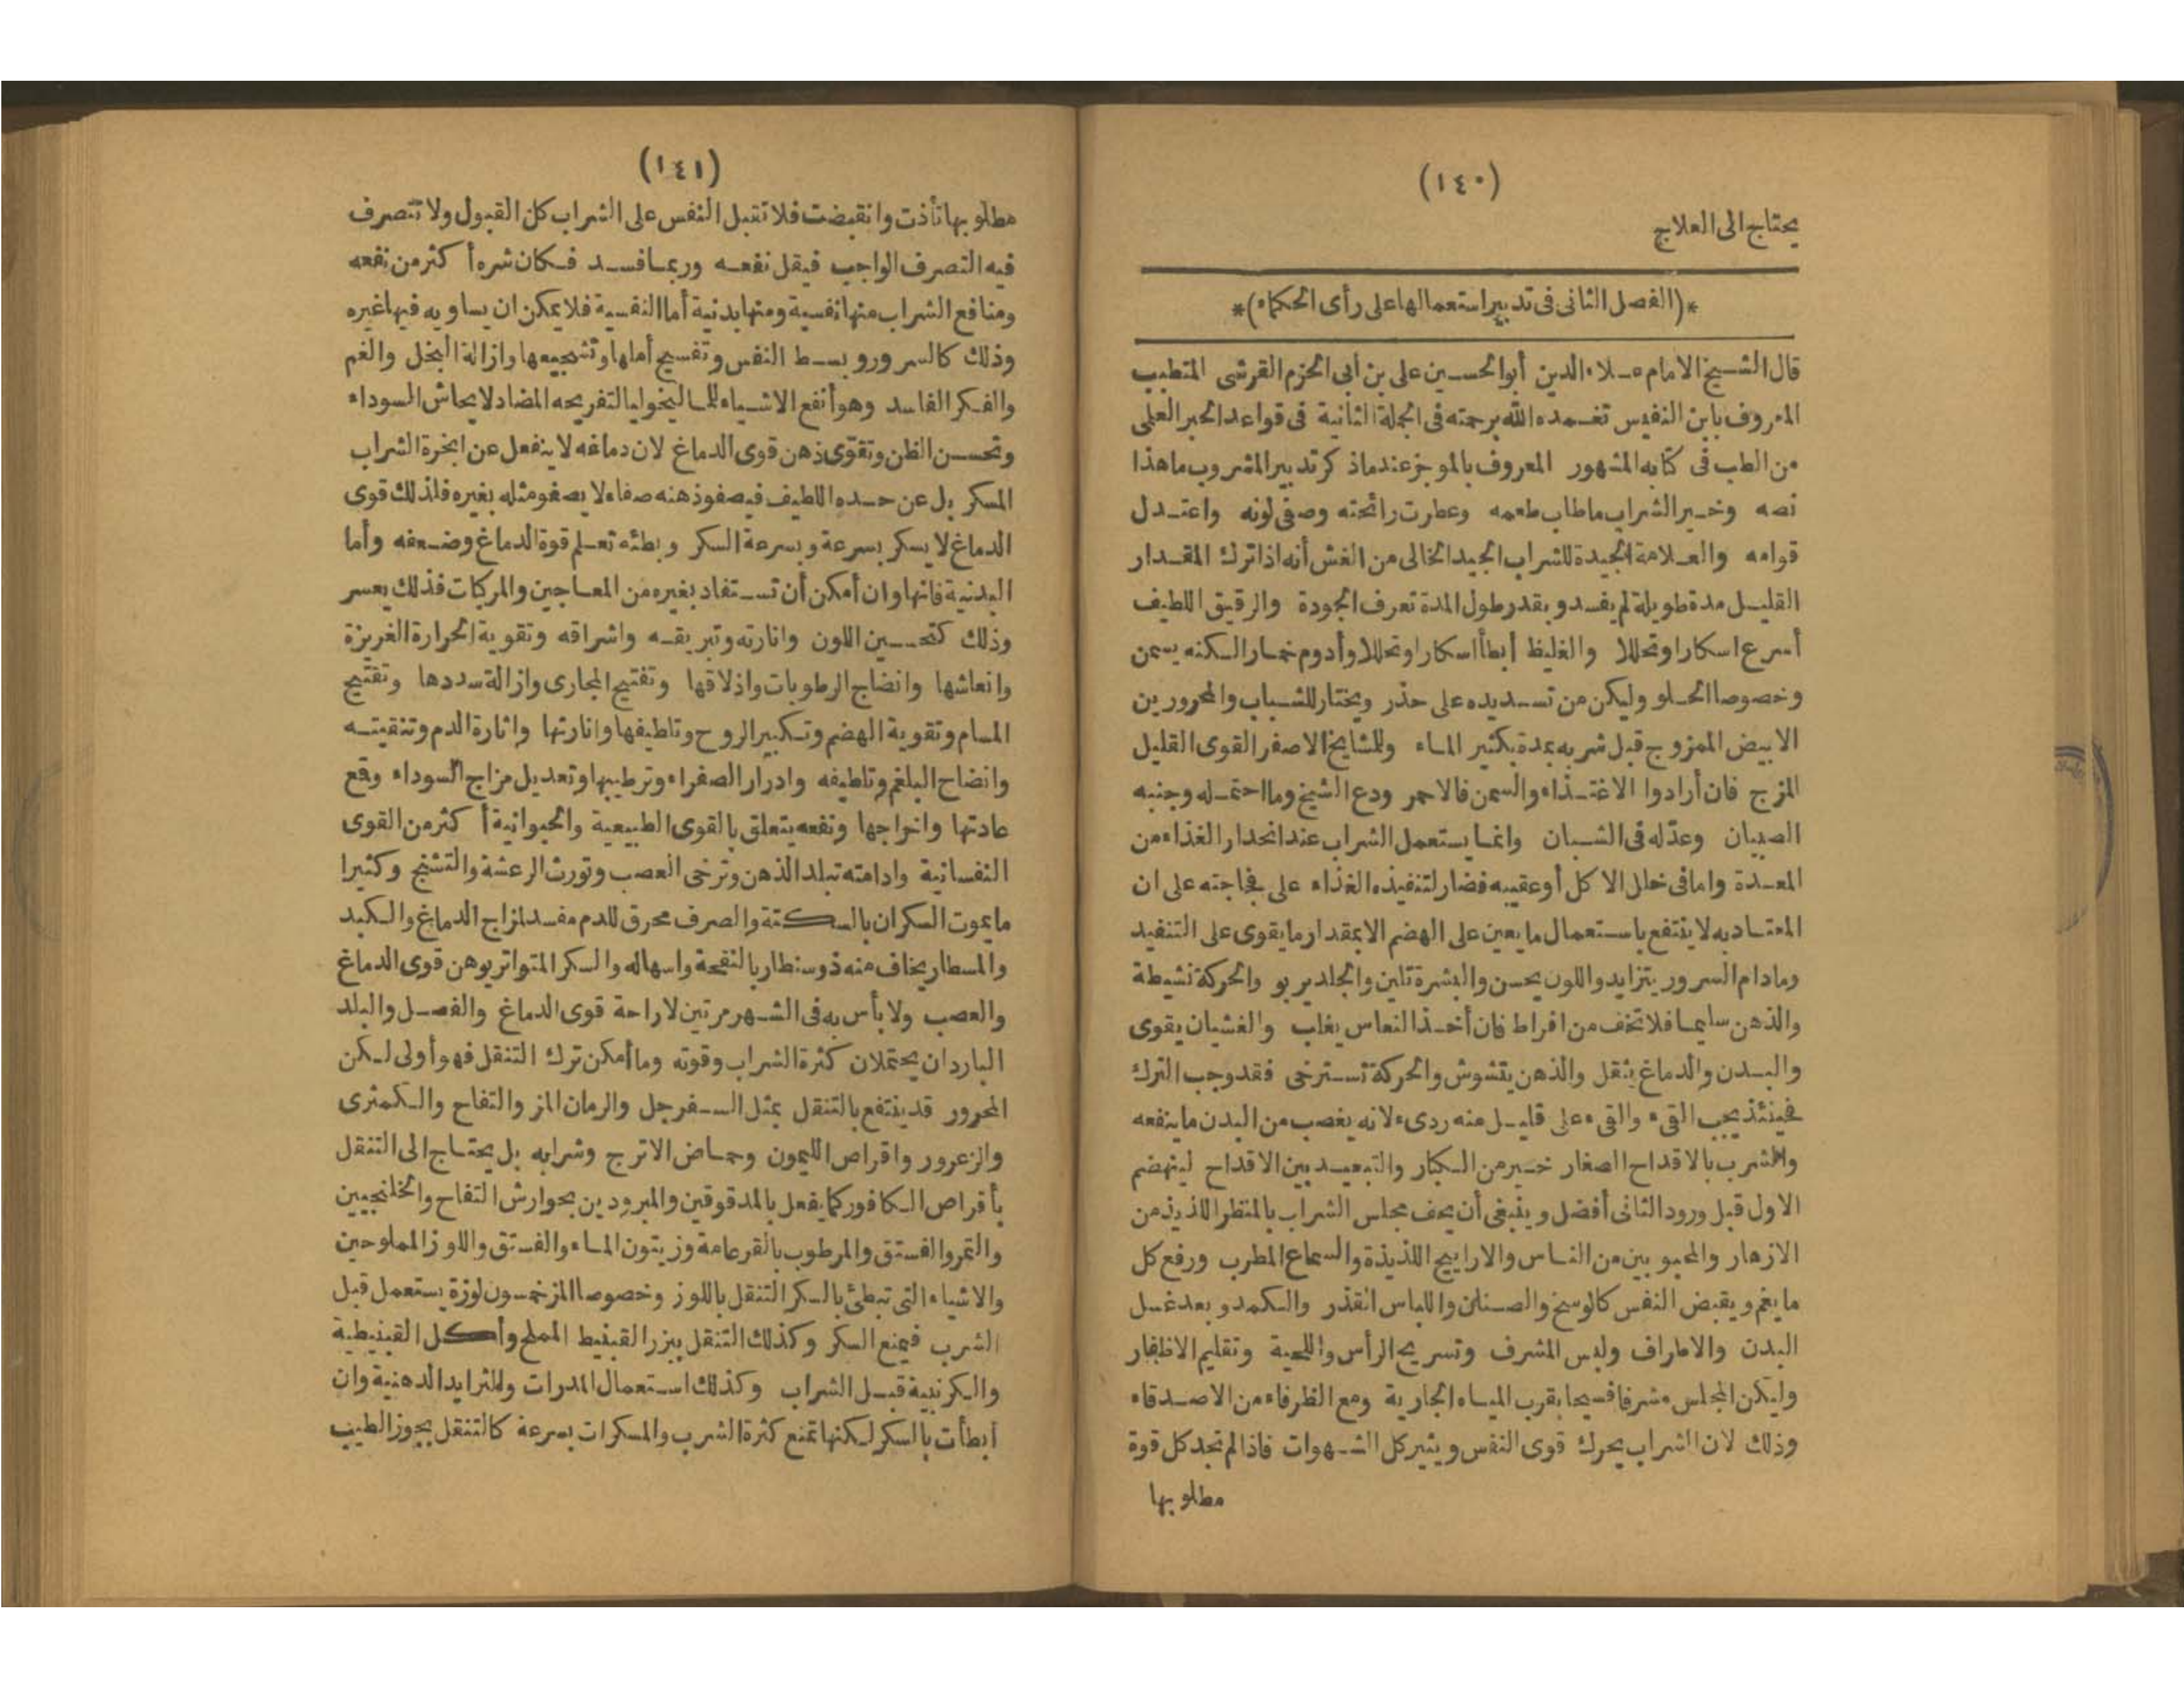 (١٤٠)
يحتاج الى العلاج
*(الفصل الثانى فى تدبير استعمالها على رأى الحكماء)*
قال الشيخ الامام علاء الدين أبو الحسين على بن أبى الحزم القرشى المتطبب
المعروف بابن النفيس تغمده الله برحمته فى الجملة الثانية فى قواعد الجبر العلمى
من الطب فى كتابه المشهور المعروف بالموجز عند ماذ كر تدبير المشروب ما هذا
نصه وخير الشراب ماطاب طعمه وعطرت رائحته وصفى لونه واعتدل
قوامه والعلامة الجيدة للشراب الجيد الخالى من الغش أنه اذا ترك المقدار
القليل مدة طويلة لم يفسد وبقدر طول المدة تعرف الجودة والرقيق اللطيف
أسرع اسكارا وتحللا والغليظ أبطأ اسكارا وتحللا وأدوم خمار الكنه يسمن
وخصوصا الحلو وليكن من تسديده على حذر ويختار للشباب والمحرورين
الابيض الممزوج قبل شربه بمدة بكثير الماء وللمشايخ الاصفر القوى القليل
المزج فان أرادوا الاغتذاء والسمن فالاحمر ودع الشيخ وما احتمله وجنبه
الصبيان وعدّله فى الشبان وانما يستعمل الشراب عند انحدار الغذاء من
المعدة واما فى خلل الاكل أو عقيبه فضار لتنفيذه الغذاء على فجاجته على ان
المعتاد به لا ينتفع باستعمال ما يعين على الهضم الا بمقدار ما يقوى على التنفيد
وما دام السرور يتزايد واللون يحسن والبشرة تلين والجلد يربو والحركة نشيطة
والذهن سليما فلا تخف من افراط فان أخذ النعاس يغلب والغشيان يقوى
والبدن والدماغ يثقل والذهن يتشوش والحركة تسترخى فقد وجب الترك
فحينئذ يجب القىء والقىء على قليل منه ردىء لانه يغصب من البدن ما ينفعه
والشرب بالاقداح الصغار خير من الكبار والتبعيد بين الاقداح لينهضم
الاول قبل ورود الثانى أفضل وينبغى أن يحف مجلس الشراب بالمنظر اللذيذ من
الازهار والمحبوبين من الناس والاراييح اللذيذة والسماع المطرب ورفع كل
ما يغم ويقبض النفس كالوسخ والصنان واللباس القذر والكمد وبعد غسل
البدن والاطراف ولبس المشرف وتسريح الرأس واللحية وتقليم الاظفار
وليكن المجلس مشرفا فسيحا بقرب المياه الجارية ومع الظرفاء من الاصدقاء
وذلك لان الشراب يحرك قوى النفس ويثير كل الشهوات فاذا لم تجد كل قوة
مطلوبها
(١٤١)
مطلوبها تأذت وانقبضت فلا تقبل النفس على الشراب كل القبول ولا تتصرف
فيه التصرف الواجب فيقل نفعه وربما فسد فكان شره أكثر من نفعه
ومنافع الشراب منها نفسية ومنها بدنية أما النفسية فلا يمكن ان يساويه فيها غيره
وذلك كالسرور وبسط النفس وتفسيح أملها وتشجيعها وازالة البخل والغم
والفكر الفاسد وهو أنفع الاشياء للماليخوليا لتفريحه المضاد لايحاش السوداء
وتحسن الظن وتقوّى ذهن قوى الدماغ لان دماغه لا ينفعل عن ابخرة الشراب
المسكر بل عن حده اللطيف فيصفو ذهنه صفاء لا يصفو مثله بغيره فلذلك قوى
الدماغ لا يسكر بسرعة وبسرعة السكر وبطئه تعلم قوة الدماغ وضعفه وأما
البدنية فانها وان أمكن أن تستفاد بغيره من المعاجين والمركبات فذلك يعسر
وذلك كتحسين اللون وانارته وتبريقه واشراقه وتقوية الحرارة الغريزة
وانعاشها وانضاج الرطوبات واذلاقها وتفتيح المجارى وازالة سددها وتفتيح
المسام وتقوية الهضم وتكبير الروح وتلطيفها وانارتها واثارة الدم وتنقيته
وانضاح البلغم وتلطيفه وادرار الصفراء وترطيبها وتعديل مزاج السوداء وقع
عادتها واخراجها ونفعه يتعلق بالقوى الطبيعية والحيوانية أكثر من القوى
النفسانية وادامته تبلد الذهن وترخى العصب وتورث الرعشة والتشنج وكثيرا
ما يموت السكران بالسكتة والصرف محرق للدم مفسد لمزاج الدماغ والكبد
والمسطار يخاف منه ذوسنطاريا لنفخة واسهاله والسكر المتواتر يوهن قوى الدماغ
والعصب ولا بأس به فى الشهر مرتين لاراحة قوى الدماغ والفصل والبلد
الباردان يحتملان كثرة الشراب وقوته وما أمكن ترك التنقل فهو أولى لكن
المحرور قد ينتفع بالتنقل بمثل السفرجل والرمان المز والتفاح والكمثرى
والزعرور واقراص الليمون وحماض الاترج وشرابه بل يحتاج الى التنقل
بأقراص الكافور كما يفعل بالمدقوقين والمبرودين بجوارش التفاح والخلنجبين
والتمر والفستق والمرطوب بالقرعامة وزيتون الماء والفستق واللوز المملوحين
والاشياء التى تبطئ بالسكر التنقل باللوز وخصوصا المز خمسون لوزة يستعمل قبل
الشرب فيمنع السكر وكذلك التنقل ببزر القنبيط المملح وأكل القنبيطية
والكرنبية قبل الشراب وكذلك استعمال المدرات وللثرايد الدهنية وان
أبطأت بالسكر لكنها تمنع كثرة الشرب والمسكرات بسرعة كالتنقل بجوز الطيب